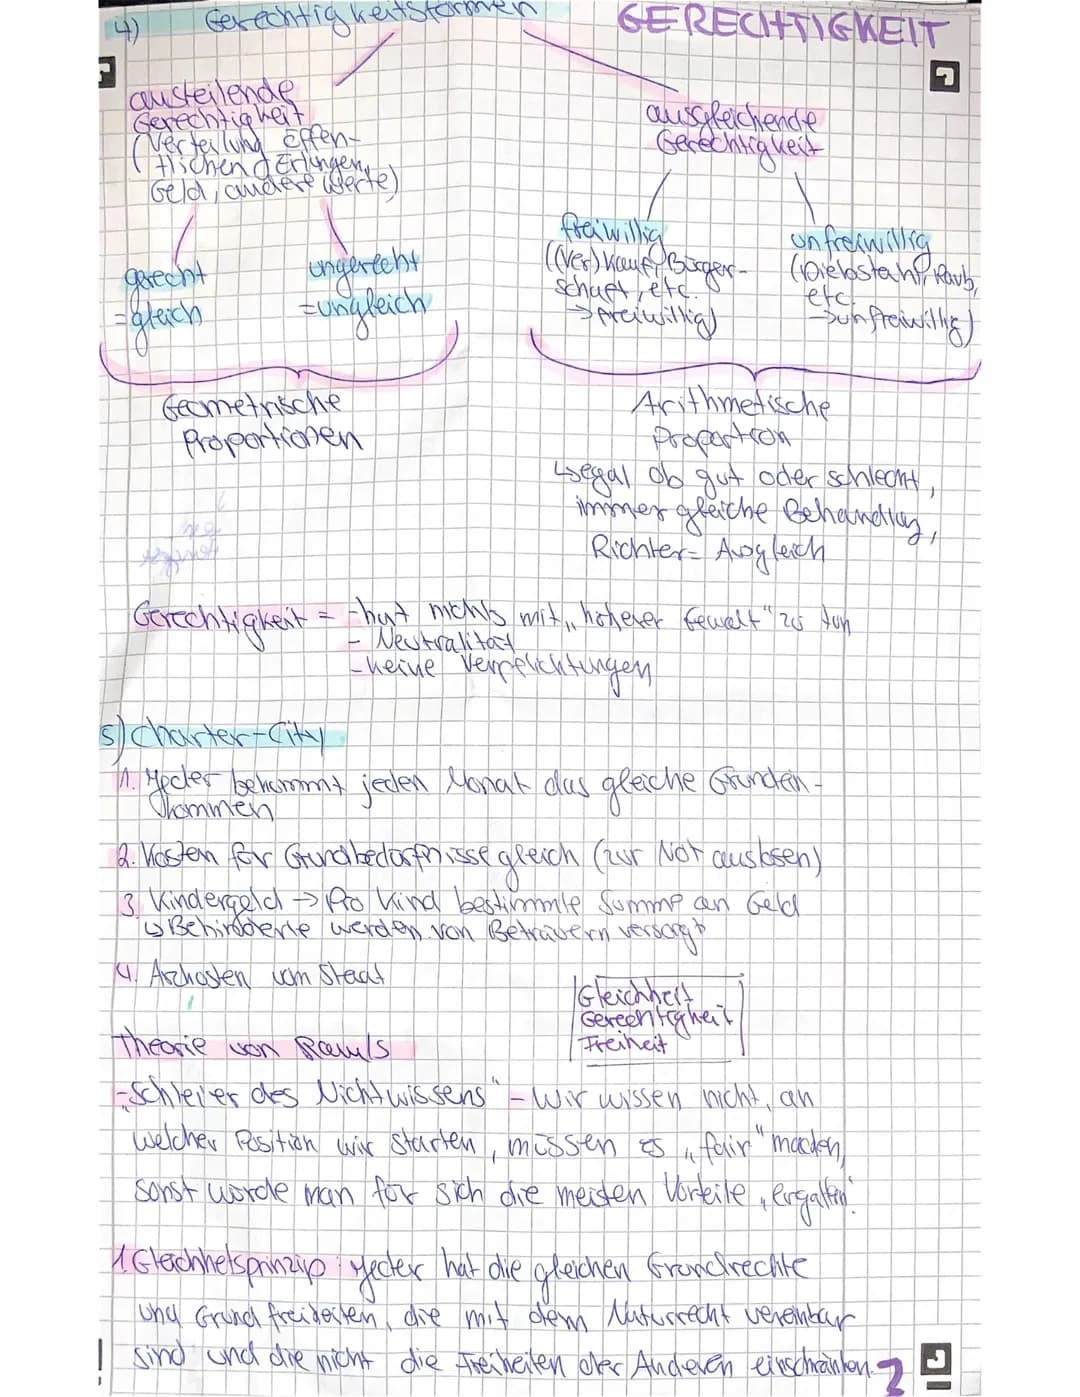 4) Gerechtigkeitsformen
GERECHTIGKEIT
austeilende
Gerechtigkeit
(Verteilung öffen-
tlichen
Geld, andere Werte)
gerecht
=gleich
ungerecht
=ungleich
Geometrische
Proportionen
ausgleichende
Gerechtigkeit
freiwillig
((Ver)kauf, Bürger-
schaft, etc.
→freiwillig)
unfreiwillig
(Diebstahl, Raub,
etc.
→unfreiwillig)
Arithmetische
Proportion
↳egal ob gut oder schlecht,
immer gleiche Behandlug,
Richter= Ausgleich
Gerechtigkeit = -hat nichts mit „höherer Gewalt" zu tun
- Neutralität
-keine Verpflichtungen
5) Charter-City
1. Jeder bekommt jeden Monat das gleiche Grundein-
kommen
2. Kosten für Grundbedürfnisse gleich (zur Not auslosen)
3. Kindergeld → Pro Kind bestimmte Summe an Geld
↳ Behinderte werden von Betreuern versorgt
4. Arztkosten vom Staat
Gleichheit
Gerechtigkeit
Freiheit
Theorie von Rawls
-„Schleier des Nichtwissens" - Wir wissen nicht, an
welcher Position wir starten, müssen es „fair" machen,
sonst würde man für sich die meisten Vorteile
1. Gleichheitsprinzip: Jeder hat die gleichen Grundrechte
und Grundfreiheiten, die mit dem Naturrecht vereinbar
sind und die nicht die Freiheiten der Anderen einschränken.
2